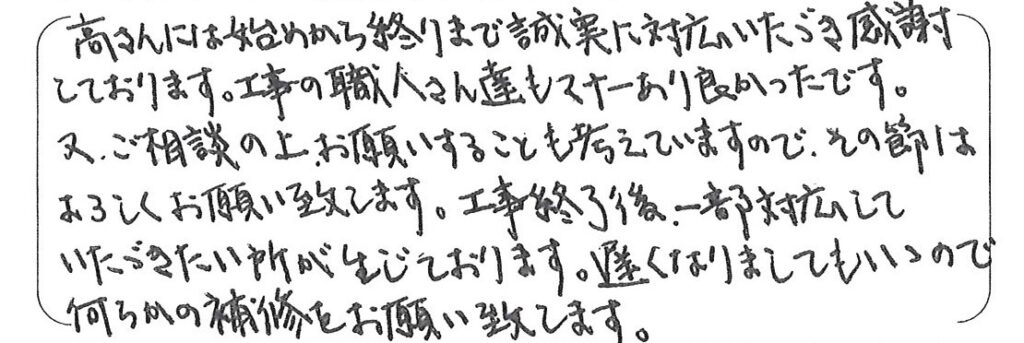 高さんには始めから終りまで誠実に対応いただき感謝
しております。工事の職人さん達もマナーあり良かったです。
又、ご相談の上、お願いすることも考えていますので、その節は
よろしくお願い致します。工事終了後、一部対応して
いただきたい所が生じております。遅くなりましてもいいので
何らかの補修をお願い致します。